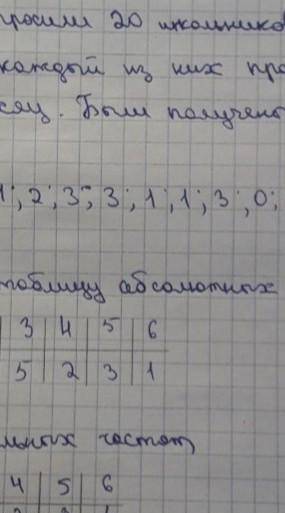 просили 20 школьников
каждый из них про
сяц. Были получены
1; 2; 3; 3; 1; 1; 3; 0;
таблицу абсолютных
3 4 5 6
5 2 3 1
льных частот
4 5 6